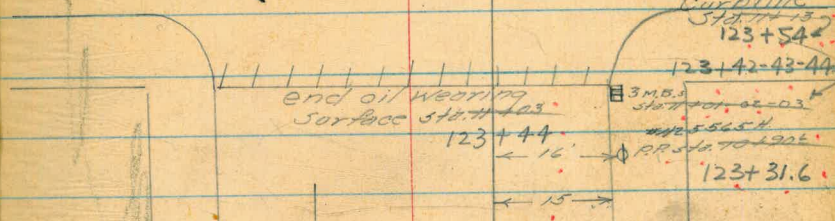 Curbline
Sta. 11+13.9
123+54
123+42-43-44
end oil wearing
Surface Sta. 11+03
123+44
3 M.B.s
Sta 11+01-02-03
5565H
P.P. Sta. 10+90±
16'
123+31.6
15